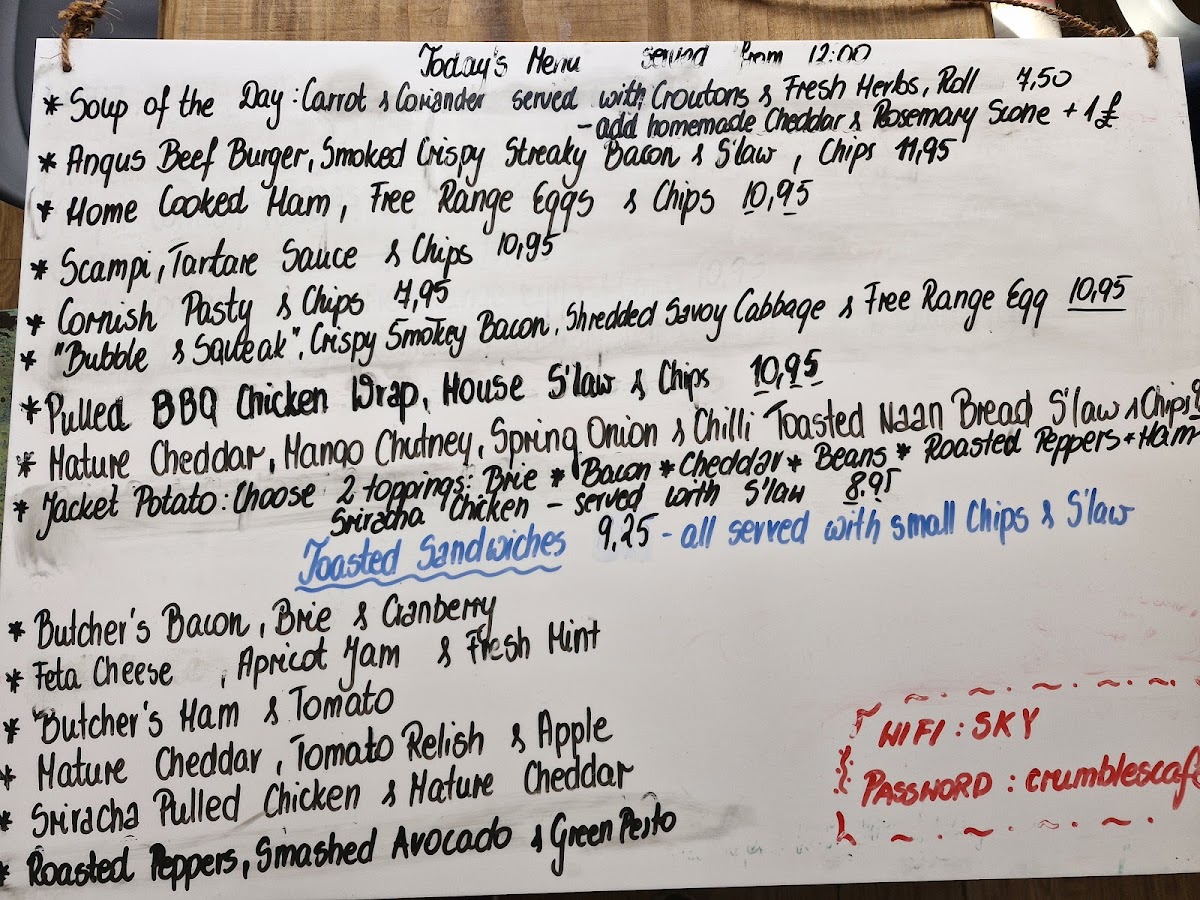 Today's Menu served from 12:00
* Soup of the Day: Carrot & Coriander served with Croutons & Fresh Herbs, Roll 7,50
- add homemade Cheddar & Rosemary Scone + 1£
* Angus Beef Burger, Smoked Crispy Streaky Bacon & S'law, Chips 11,95
* Home Cooked Ham, Free Range Eggs & Chips 10,95
* Scampi, Tartare Sauce & Chips 10,95
* Cornish Pasty & Chips 7,95
* "Bubble & Squeak", Crispy Smokey Bacon, Shredded Savoy Cabbage & Free Range Egg 10,95
* Pulled BBQ Chicken Wrap, House S'law & Chips 10,95
* Mature Cheddar, Mango Chutney, Spring Onion & Chilli Toasted Naan Bread S'law & Chips
* Jacket Potato: Choose 2 toppings: Brie * Bacon * Cheddar * Beans * Roasted Peppers * Ham
Sriracha Chicken - served with S'law 8.95
Toasted Sandwiches 9,25 - all served with small Chips & S'law
* Butcher's Bacon, Brie & Cranberry
* Feta Cheese, Apricot Jam & Fresh Mint
* Butcher's Ham & Tomato
* Mature Cheddar, Tomato Relish & Apple
* Sriracha Pulled Chicken & Mature Cheddar
* Roasted Peppers, Smashed Avocado & Green Pesto
WIFI: SKY
PASSWORD: crumblescafe